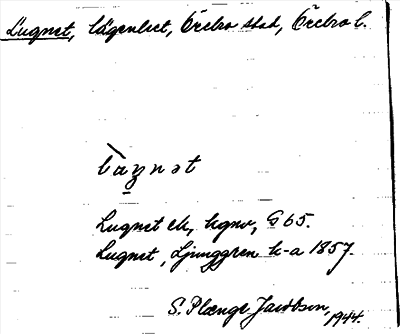 Lugnet, lägenhet, Örebro stad, Örebro l.
Lugnet ek, hgnv, G 65.
Lugnet, Ljunggren k-a 1857.
S. Plænge Jacobson, 1944.